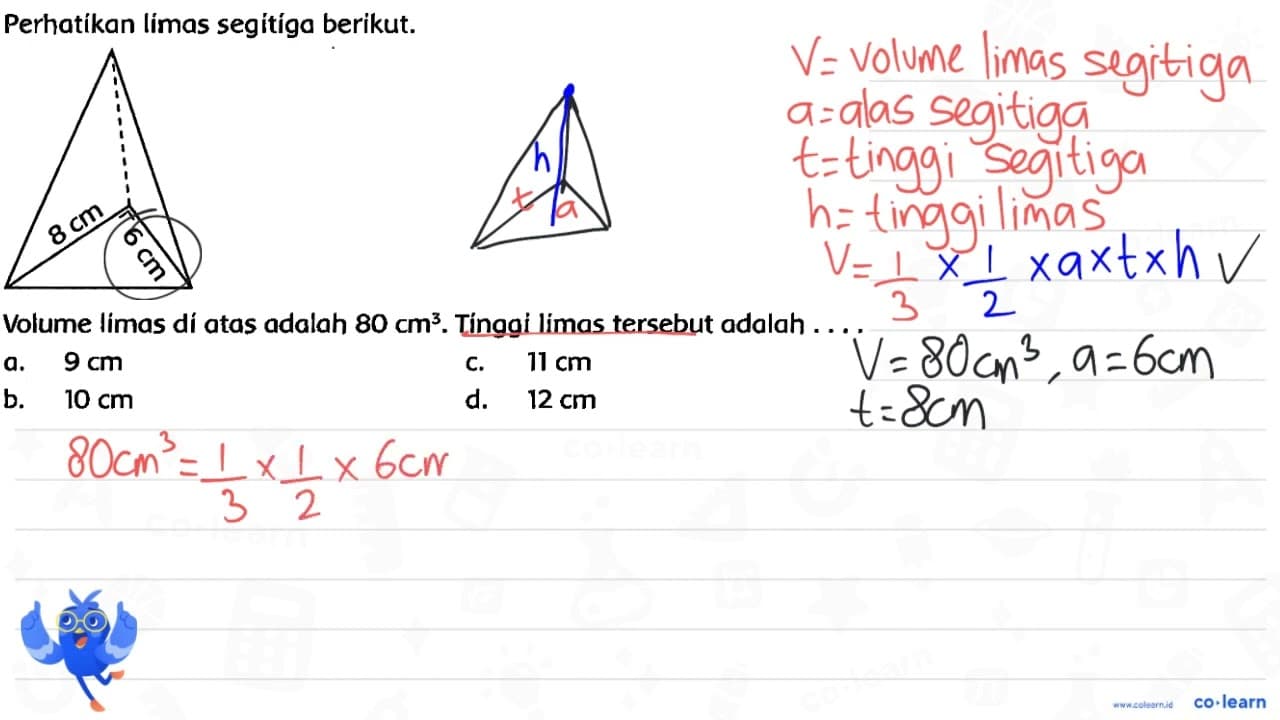 Perhatikan limas segitiga berikut.
8 cm
6 cm
h
t
a
V= volume limas segitiga
a=alas segitiga
t=tinggi segitiga
h=tinggi limas
V= 1/3 x 1/2 x a x t x h ✓
Volume limas di atas adalah 80 cm³. Tinggi limas tersebut adalah . . . .
a. 9 cm
c. 11 cm
b. 10 cm
d. 12 cm
V=80cm³, a=6cm
t=8cm
80cm³= 1/3 x 1/2 x 6cm
co·learn
www.colearn.id co·learn